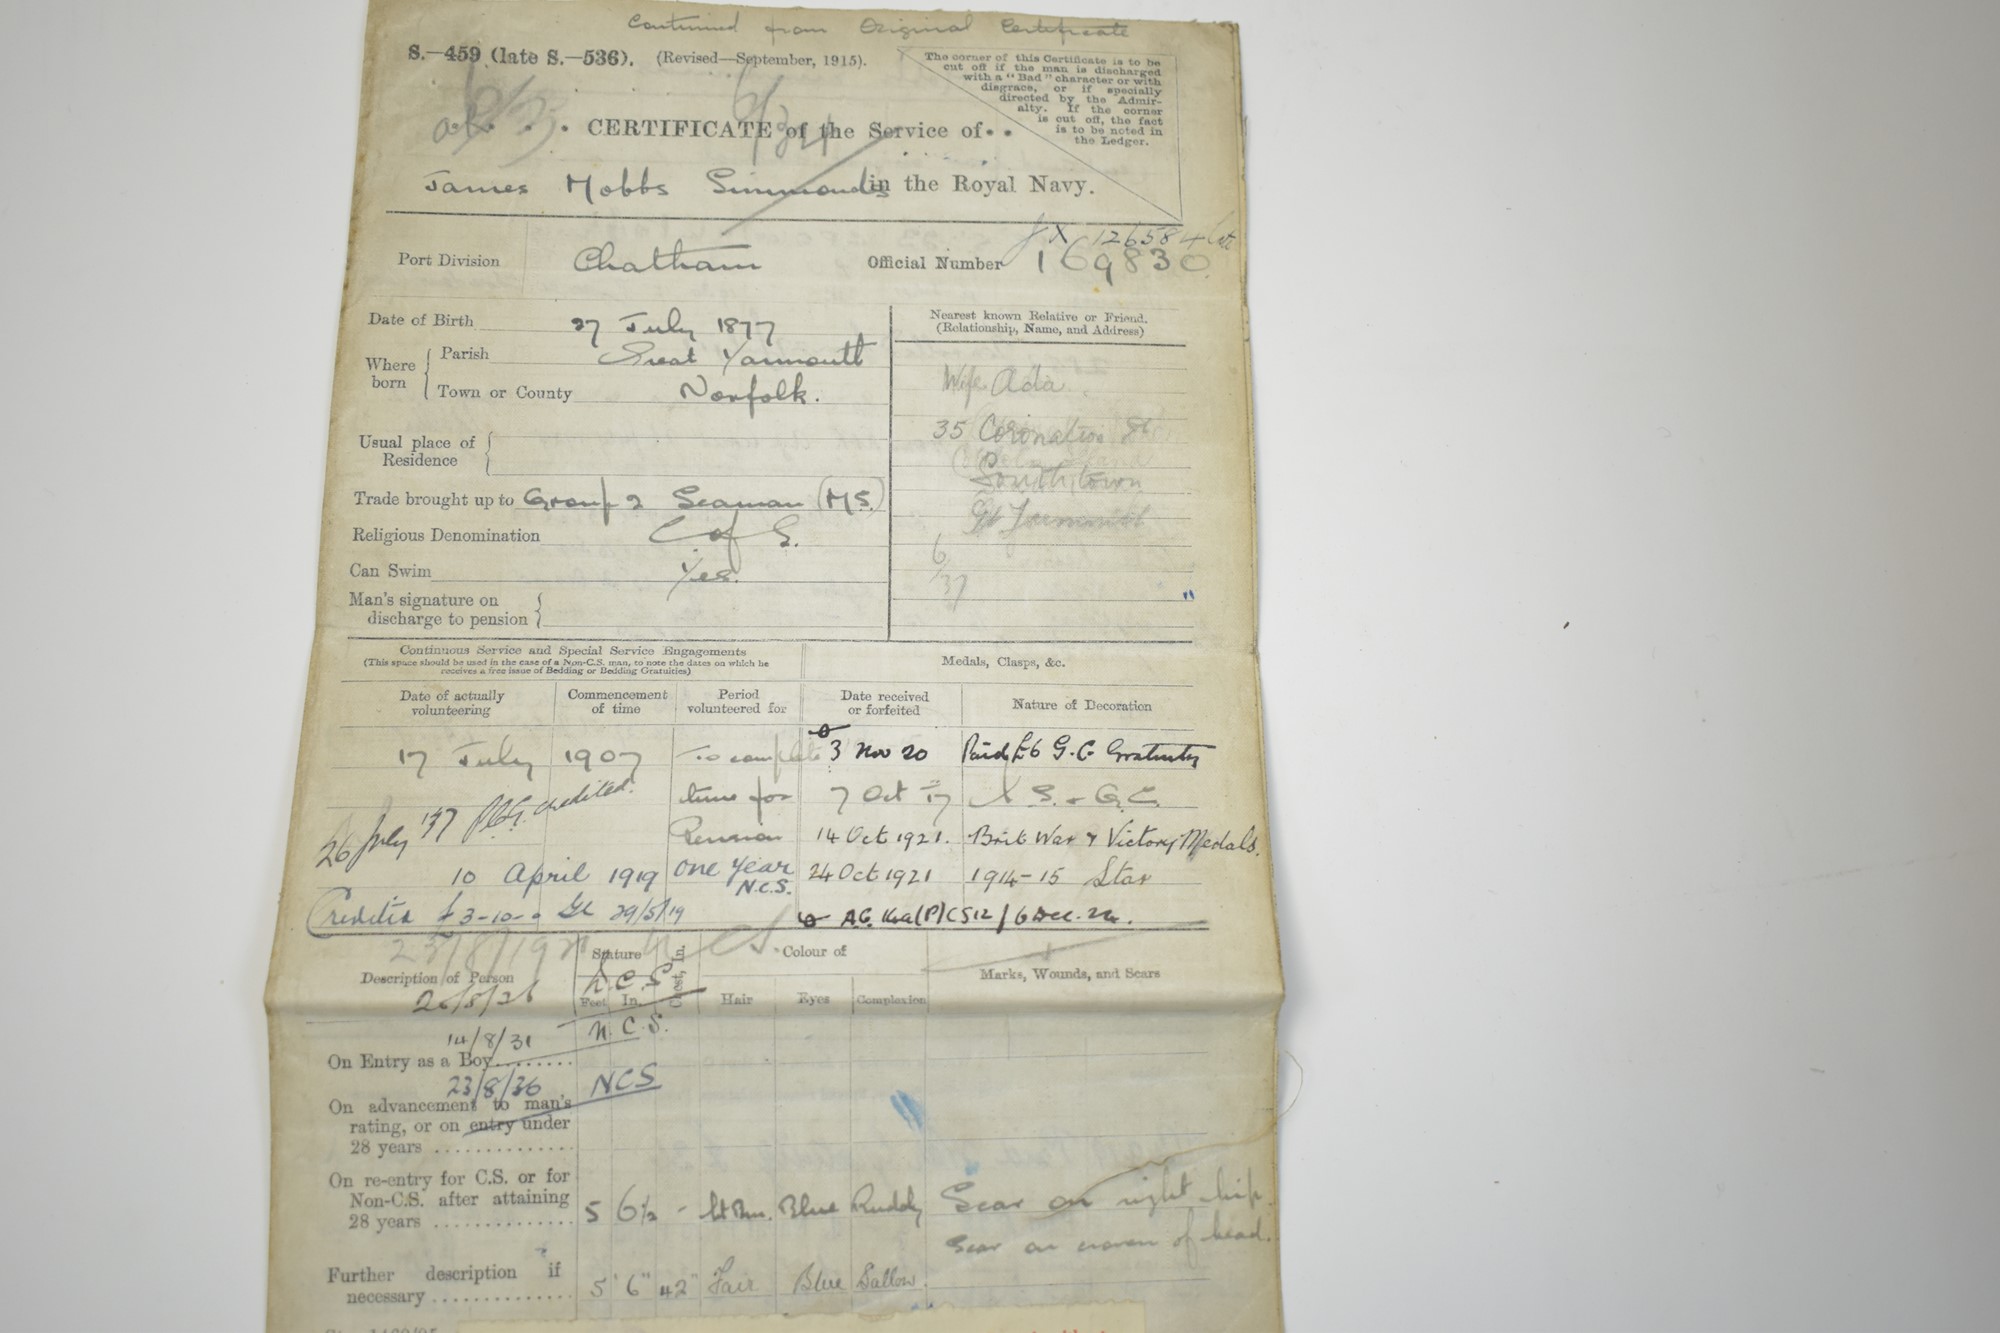 Continued from Original Certificate
S.—459 (late S.—536). (Revised—September, 1915).
The corner of this Certificate is to be
cut off if the man is discharged
with a "Bad" character or with
disgrace, or if specially
directed by the Admir-
alty. If the corner
is cut off, the fact
is to be noted in
the Ledger.
CERTIFICATE of the Service of
James Mobbs Simmonds in the Royal Navy.
JX 126584 late
Port Division Chatham Official Number 169830
Date of Birth 27 July 1877
Where born Parish Great Yarmouth
Town or County Norfolk.
Usual place of
Residence
Trade brought up to Group 2 Seaman (MS)
Religious Denomination C of E.
Can Swim Yes.
Man's signature on
discharge to pension
Nearest known Relative or Friend.
(Relationship, Name, and Address)
Wife Ada.
35 Coronation St
Southtown
Gt Yarmouth
6/37
Continuous Service and Special Service Engagements
(This space should be used in the case of a Non-C.S. man, to note the dates on which he
receives a free issue of Bedding or Bedding Gratuities)
Medals, Clasps, &c.
Date of actually
volunteering
Commencement
of time
Period
volunteered for
Date received
or forfeited
Nature of Decoration
17 July 1907 To complete 3 Nov 20 Paid £6 G.C Gratuity
time for 7 Oct 17 L S. & G.C.
26 July '37 credited.
Pension 14 Oct 1921. Brit War & Victory Medals.
10 April 1919 One Year 24 Oct 1921 1914-15 Star
N.C.S.
Credited £3-10-0 29/5/19
Description of Person
Stature
Feet In.
Chest, In.
Colour of
Hair Eyes Complexion
Marks, Wounds, and Scars
26/8/26 N.C.S
14/8/31 N.C.S.
On Entry as a Boy
23/8/36 NCS
On advancement to man's
rating, or on entry under
28 years
On re-entry for C.S. or for
Non-C.S. after attaining
28 years 5 6½ - lt Brn. Blue Ruddy Scar on right hip.
Scar on crown of head.
Further description if
necessary 5' 6" 42" Fair Blue Sallow.